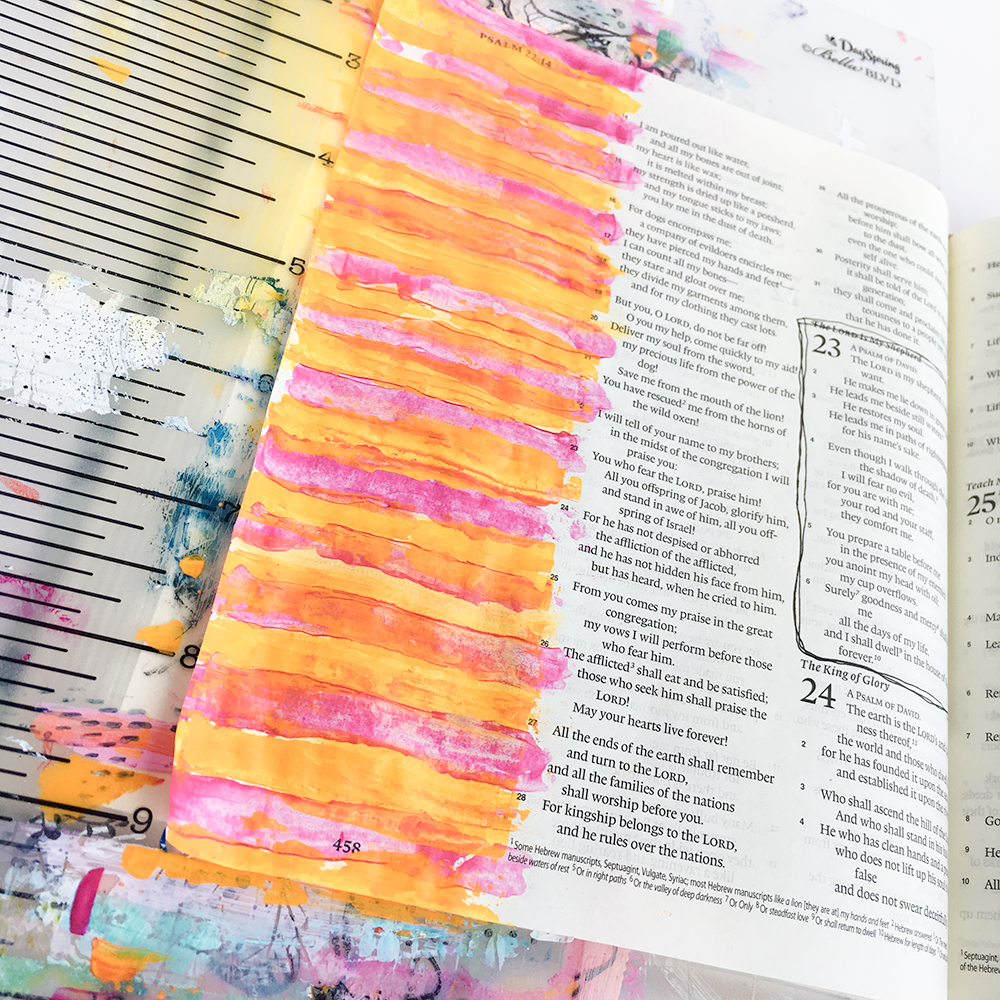 3
4
5
6
7
8
9
DaySpring
Bella BLVD
PSALM 22:14
14
I am poured out like water,
and all my bones are out of joint;
my heart is like wax;
it is melted within my breast;
my strength is dried up like a potsherd,
and my tongue sticks to my jaws;
you lay me in the dust of death.
16
For dogs encompass me;
a company of evildoers encircles me;
17
they have pierced my hands and feet
I can count all my bones—
they stare and gloat over me;
they divide my garments among them,
and for my clothing they cast lots.
But you, O LORD, do not be far off!
20
O you my help, come quickly to my aid!
Deliver my soul from the sword,
21
my precious life from the power of the
dog!
Save me from the mouth of the lion!
You have rescued² me from the horns of
the wild oxen!
I will tell of your name to my brothers;
23
in the midst of the congregation I will
praise you:
You who fear the LORD, praise him!
All you offspring of Jacob, glorify him,
24
and stand in awe of him, all you off-
spring of Israel!
For he has not despised or abhorred
the affliction of the afflicted,
and he has not hidden his face from him,
25
but has heard, when he cried to him.
From you comes my praise in the great
congregation;
26
my vows I will perform before those
who fear him.
The afflicted³ shall eat and be satisfied;
those who seek him shall praise the
LORD!
27
May your hearts live forever!
All the ends of the earth shall remember
and turn to the LORD,
28
and all the families of the nations
shall worship before you.
For kingship belongs to the LORD,
and he rules over the nations.
458
All the prosperous of the
worship;
before him shall bow all
to the dust,
30
even the one who could
self alive
Posterity shall serve him;
31
it shall be told of the Lord
generation;
they shall come and proclaim
teousness to a people
that he has done it.
The LORD Is My Shepherd
23 A PSALM OF DAVID.
The LORD is my shepherd;
2
want.
He makes me lie down in
3
He leads me beside still waters.
He restores my soul.
He leads me in paths of
4
for his name's sake.
Even though I walk through the
the shadow of death,
I will fear no evil,
for you are with me;
your rod and your staff,
5
they comfort me.
You prepare a table before me
in the presence of my
you anoint my head with oil;
6
my cup overflows.
Surely⁷ goodness and mercy
me
all the days of my life,
and I shall dwell⁹ in the house of
forever.¹⁰
The King of Glory
24 A PSALM OF DAVID.
The earth is the LORD's and
ness thereof,¹¹
2
the world and those who
for he has founded it upon the
3
and established it upon the
Who shall ascend the hill of the
4
And who shall stand in his
He who has clean hands and a
who does not lift up his soul
false
and does not swear deceitfully.
¹ Some Hebrew manuscripts, Septuagint, Vulgate, Syriac; most Hebrew manuscripts like a lion [they are at] my hands and feet ² Hebrew answered
beside waters of rest ⁵ Or in right paths ⁶ Or the valley of deep darkness ⁷ Or Only ⁸ Or steadfast love ⁹ Or shall return to dwell ¹⁰ Hebrew for length of days
Teach
25
2
3
4
5
6
7
8
9
10
All
¹ Septuagint,
of the Hebrew